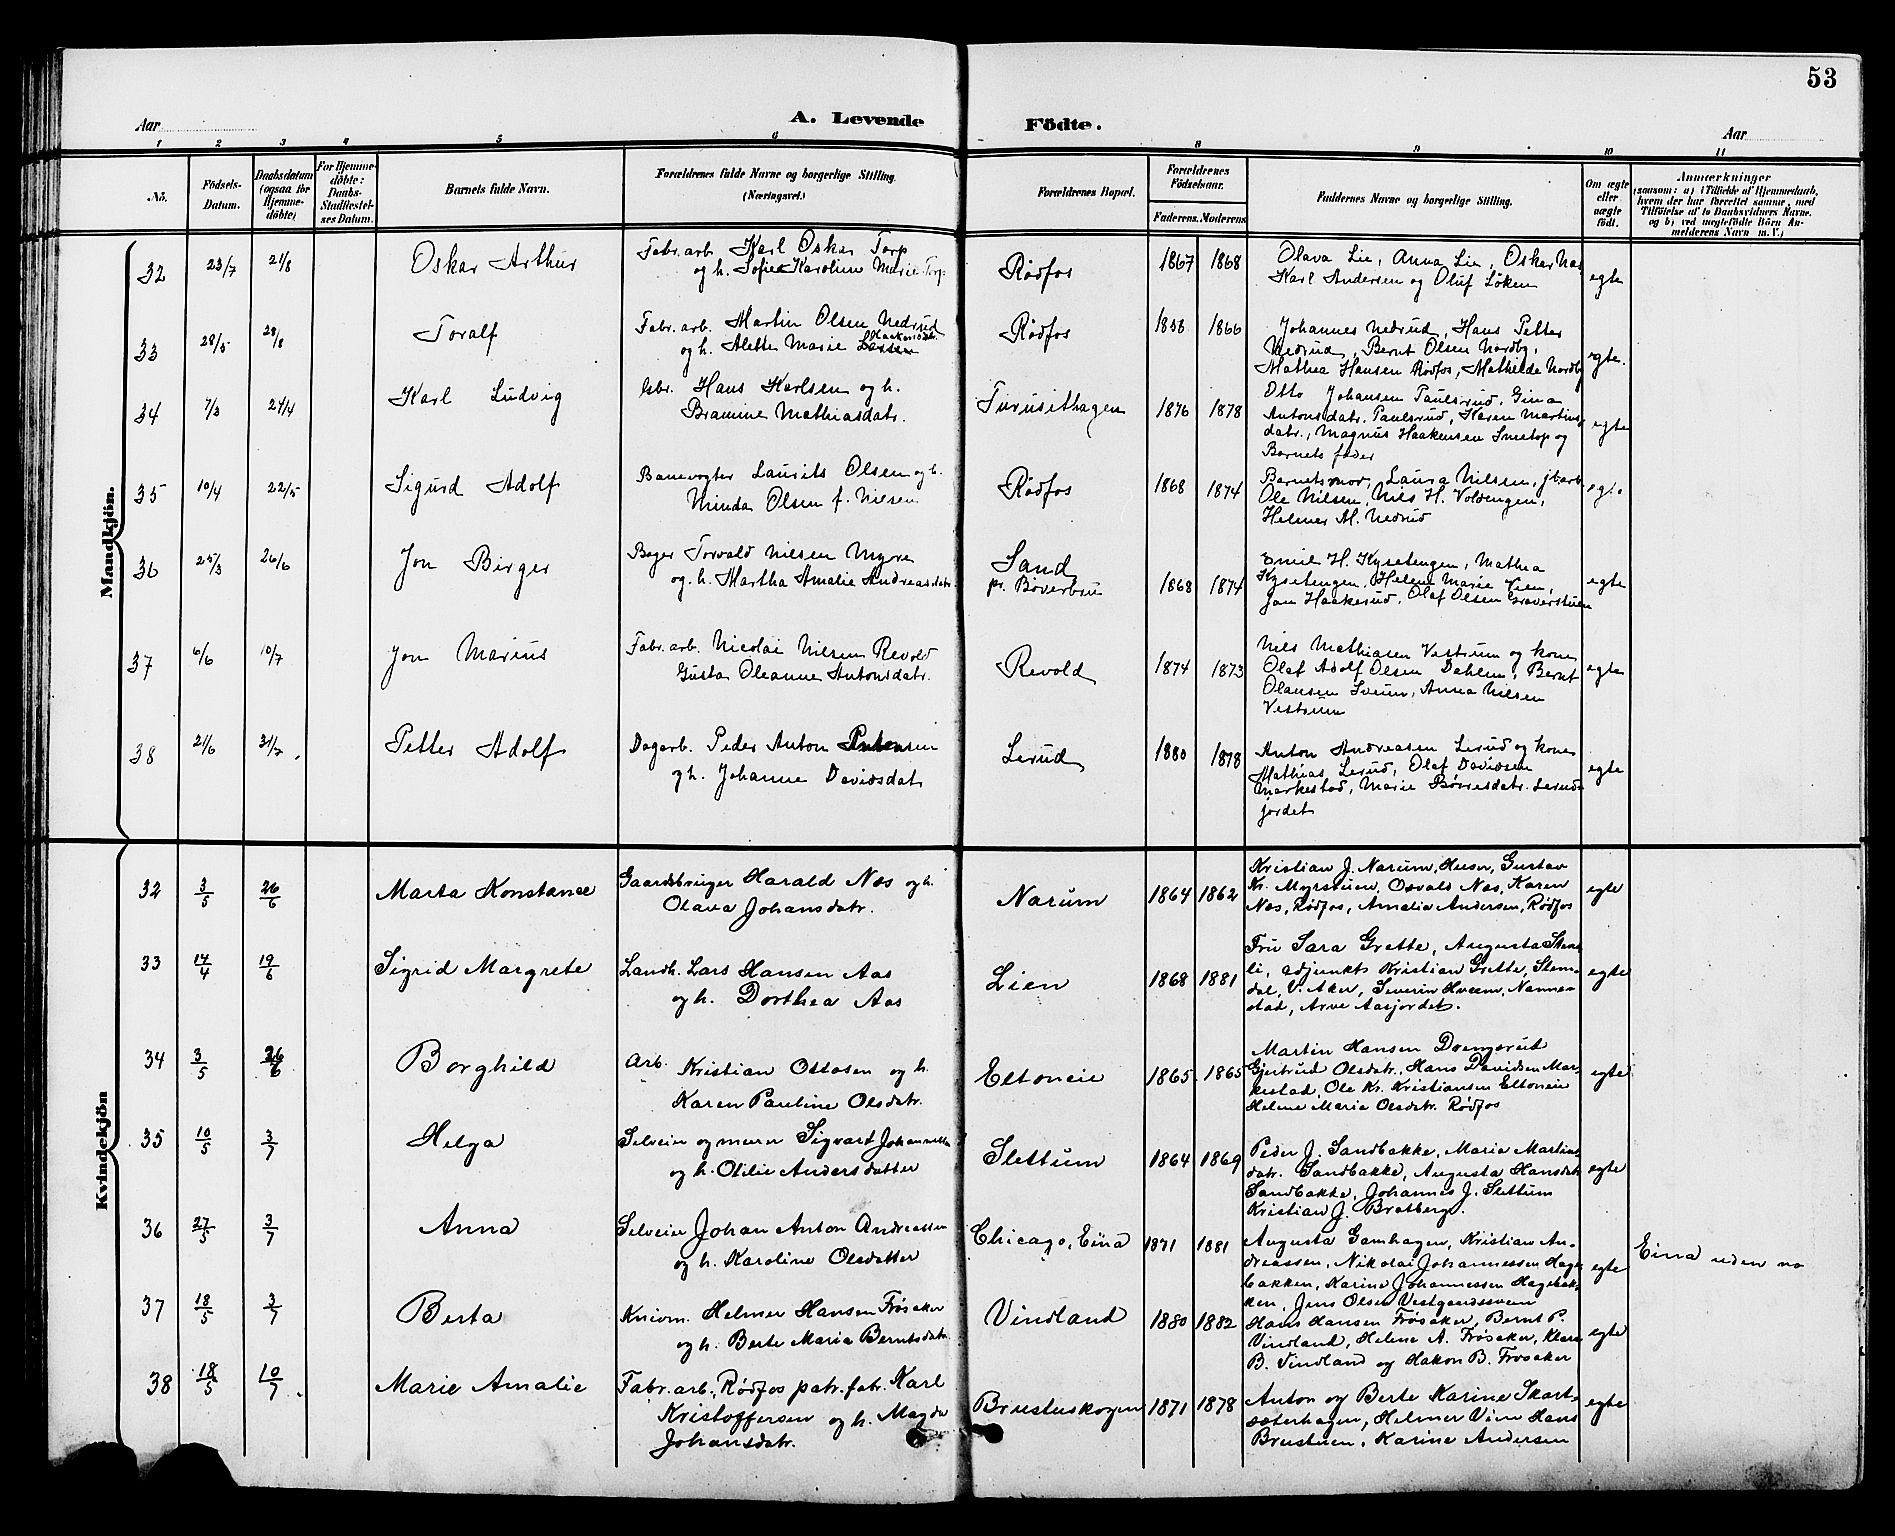 53
Aar
A. Levende Födte.
Aar
1 2 3 4 5 6 8 9 10 11
No.
Födsels-Datum.
Daabsdatum (ogsaa for Hjemme-döbte)
For Hjemme-döbte: Daabs-Stadfæstel-ses Datum.
Barnets fulde Navn.
Forældrenes fulde Navne og borgerlige Stilling. (Næringsvei.)
Forældrenes Bopæl.
Forældrenes Födselsaar.
Faderens. Moderens.
Faddernes Navne og borgerlige Stilling.
Om ægte eller uægte födt.
Anmærkninger
(saasom: a) i Tilfælde af Hjemmedaab, hvem der har forrettet samme, med Tilföielse af to Daabsvidners Navne, og b) ved uægtefödte Börn An-melderens Navn m. V.)
Mandkjön.
32 23/7 21/8 Oskar Arthur
Fabr. arb. Karl Oskar Torp
og h. Sofie Karoline Marie Torp
Rödfos 1867 1868
Olava Lie, Anna Lie, Oskar Næs
Karl Andersen og Oluf Løken
egte
33 28/5 28/8 Toralf
Fabr. arb. Martin Olsen Nedrud
og h. Alette Marie
Rödfos 1866
Johannes Nedrud, Hans Petter
Nedrud, Bernt Olsen Nordby,
Mathea Hansen Rødfos, Mathilde Nordby
egte.
34 7/3 24/4 Karl Ludvig
Gbr. Hans Karlsen og h.
Bramine Mathiasdatr.
Furusethagen 1876 1878
Otto Johansen Paulsrud, Gina
Antonsdatr. Paulsrud, Karen Martins
datr., Magnus Haakensen Smetop og
Barnets fader
egte
35 10/4 22/5 Sigurd Adolf
Banevogter Laurits Olsen og h.
Minda Olsen f. Nilsen
Rödfos 1868 1874
Barnets mor, Laura Nilssen, jb.arb.
Ole Nilsen, Nils H. Voldengen,
Helmer M. Nedrud
egte
36 25/3 26/6 Jon Birger
Bager Torvald Nilsen Myre
og h. Martha Amalie Andreasdatr.
Sand
pr. Böverbru 1868 1874
Emil H. Kysetengen, Mathea
Kysetengen, Helene Marie Lien,
Jon Haakerud, Olaf Olsen Graverstuen
egte
37 6/6 10/7 Jon Marius
Fabr. arb. Nicolai Nilsen Revold
Gusta Oleanne Antonsdatr.
Revold 1874 1873
Nils Mathiasen Vestrum og kone
Olaf Adolf Olsen Dahlen, Bernt
Olausen Sveum, Anna Nilsen
Vestrum
egte
38 21/6 31/7 Petter Adolf
Dagarb. Peder Anton
og h. Johanne Davidsdatr
Lerud 1880 1878
Anton Andreasen Lerud og kone
Mathias Lerud, Olaf Davidsen
Markestad, Marie Børresdatr. Lerud-
jordet
egte
Kvindekjön
32 3/5 26/6 Marta Konstance
Gaardbruger Harald Næs og h.
Olava Johansdatr.
Narum 1864 1862
Kristian J. Narum, Husv., Gustav
Kr. Myrstuen, Osvald Næs, Karen
Næs, Rödfos, Amalie Andersen, Rödfos
egte
33 14/4 19/6 Sigrid Margrete
Landh. Lars Hansen Aas
og h. Dorthea Aas
Lien 1868 1881
Fru Sara Grette, Augusta Stens-
li, adjunkts Kristian Grette, Stem-
dal, V. Aker, Severin Hveem, Nanne-
stad, Arve Aasjordet.
egte
34 3/5 26/6 Borghild
Arb. Kristian Ottosen og h.
Karen Pauline Olsdatr.
Eltoneie 1865 1865
Martin Hansen Drengsrud
Gjertrud Olsdatr., Hans Davidsen Mar-
kestad, Ole Kr. Kristiansen Eltoneie
Helene Marie Olsdatr. Rödfos
egte
35 10/5 3/7 Helga
Selveier og murer Sigvart Johannessen
og h. Otilie Andersdatter
Slettum 1864 1869
Peder J. Sandbakke, Marie Martins
datr. Sandbakke, Augusta Hansdatr
Sandbakke, Johannes J. Slettum
Kristian J. Bratberg.
egte
36 27/5 3/7 Anna
Selveier Johan Anton Andreassen
og h. Karoline Olsdatter
Chicago, Eina 1871 1881
Augusta Gamhagen, Kristian An-
dreassen, Nikolai Johannessen Hage-
bakken, Karine Johannessen Hagebak-
ken, Jens Olsen Vestgaardssveen
egte
Eina uden no
37 18/5 3/7 Berta
Knivm. Helmer Hansen Frösaker
og h. Berte Maria Berntsdatr.
Vindland 1880 1882
Hans Hansen Frösaker, Bernt P.
Vindland, Helene A. Frösaker, Klara
B. Vindland og Hakon B. Frösaker
egte
38 18/5 10/7 Marie Amalie
Fabr. arb., Rödfos patr. fabr. Karl
Kristoffersen og h. Magda
Johansdatr.
Brustuskogen 1871 1878
Anton og Berte Karine Skart-
sæterhagen, Helmer Vien Hans
Brustuen, Karine Andersen
egte